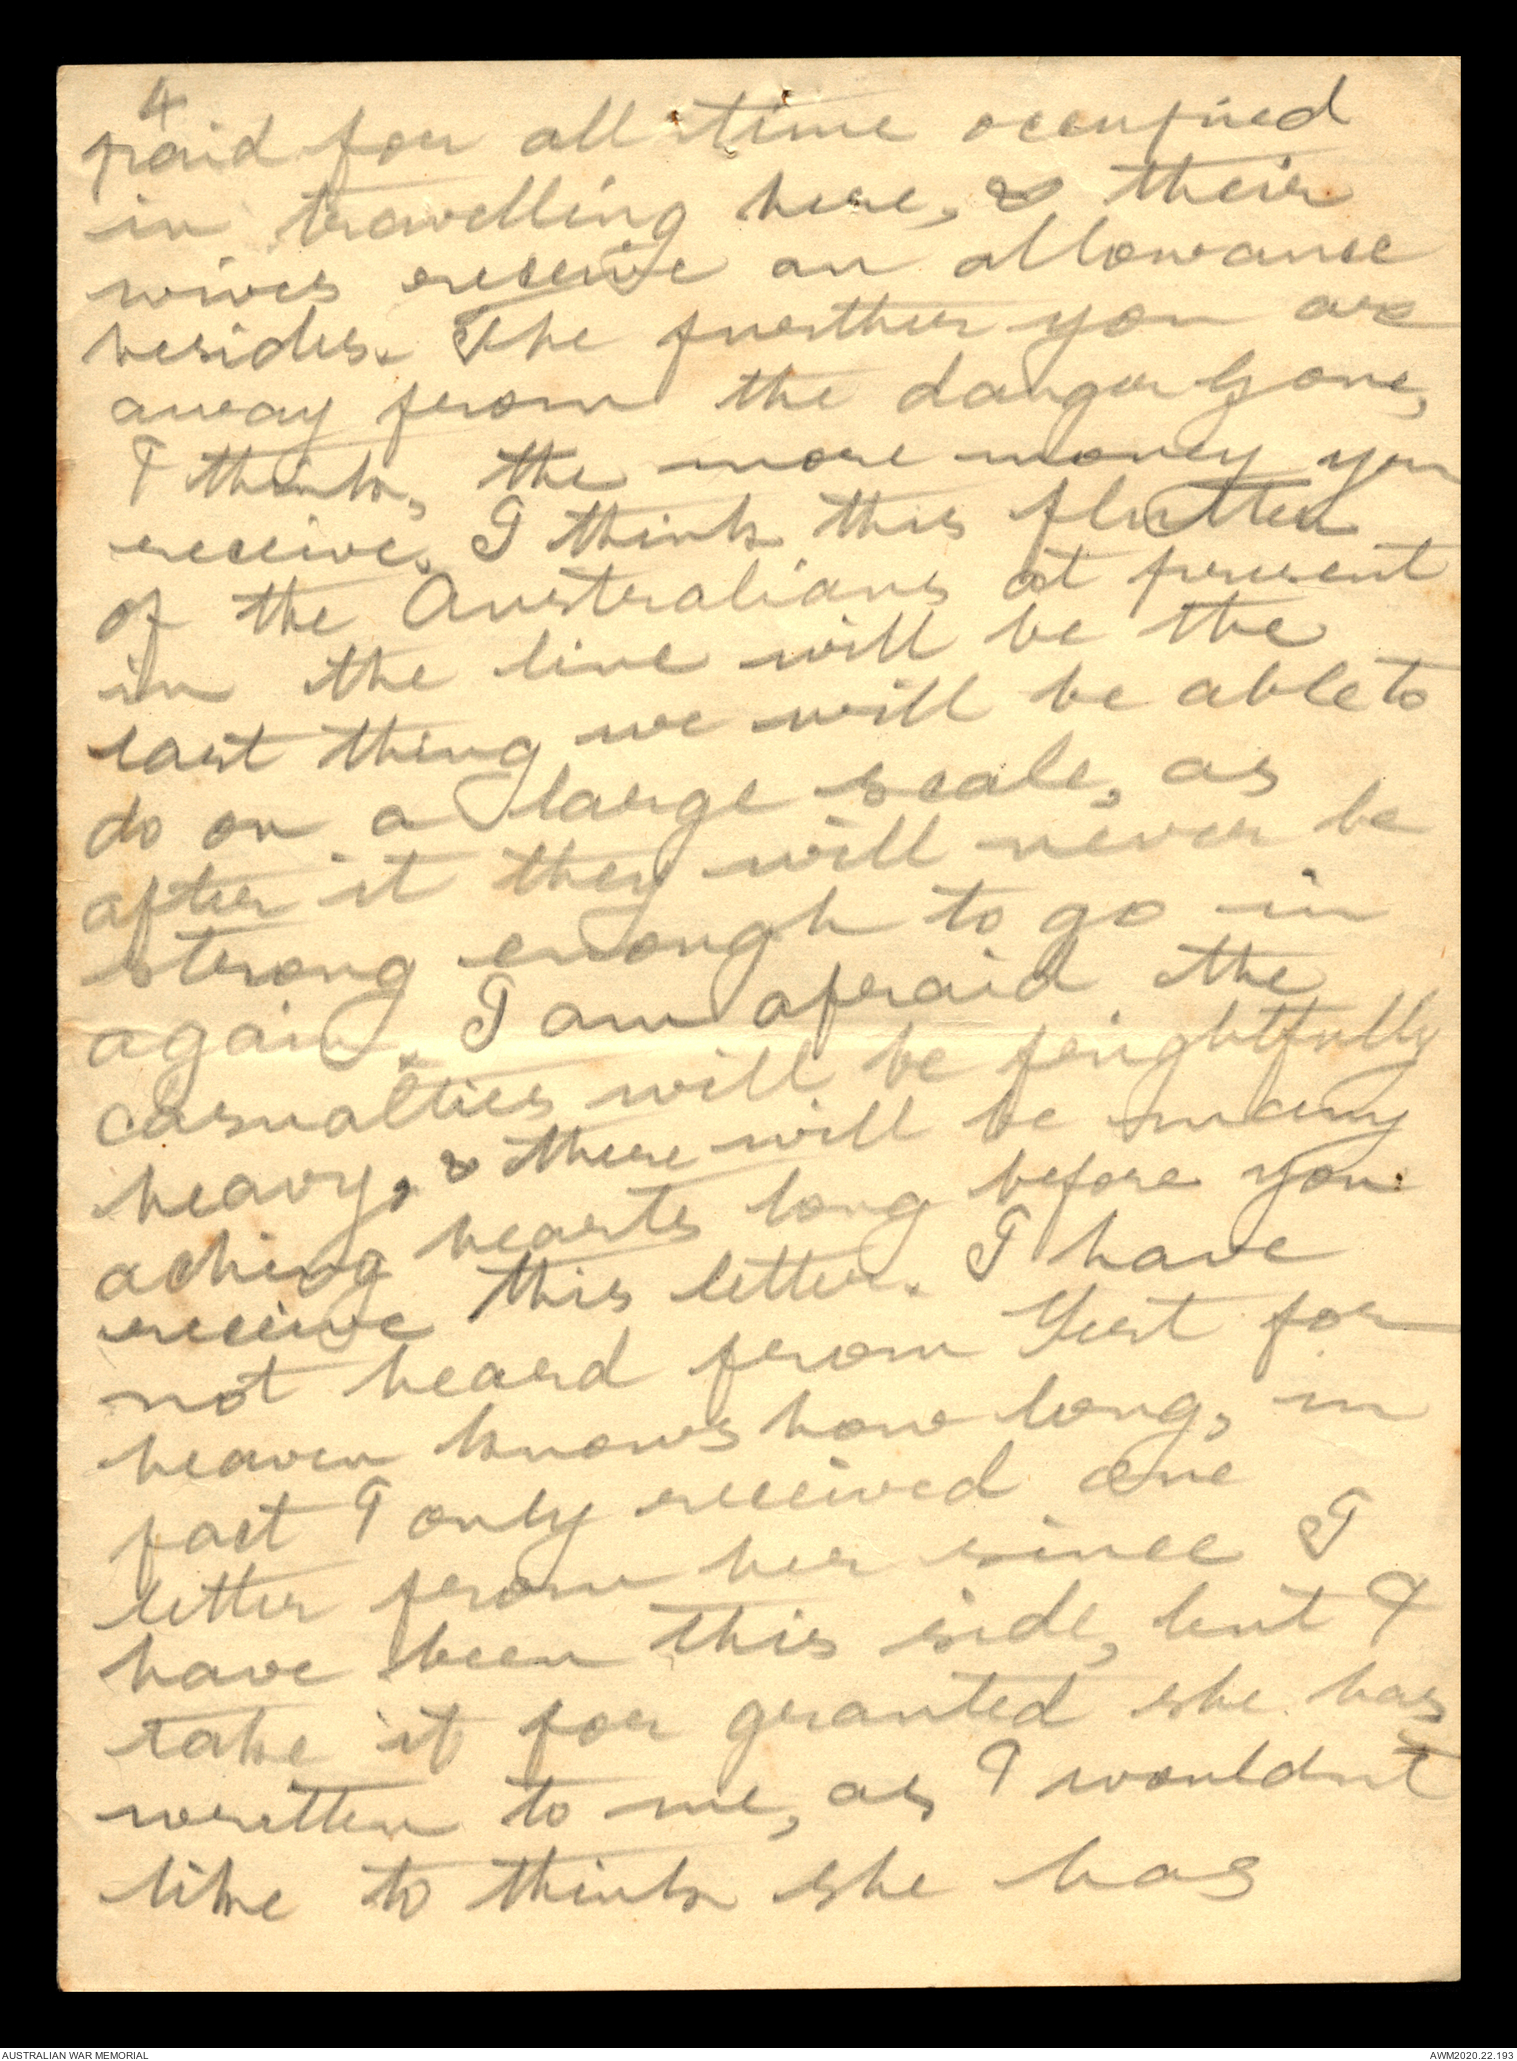 4
paid for all time occupied
in travelling here, & their
wives receive an allowance
besides. The further you are
away from the danger zone,
I think, the more money you
receive. I think this flutter
of the Australians at present
in the line will be the
last thing we will be able to
do on a large scale, as
after it they will never be
strong enough to go in
again. I am afraid the
casualties will be frightfully
heavy, & there will be many
aching hearts long before you
receive this letter. I have
not heard from Gert for
heaven knows how long, in
fact I only received one
letter from her since I
have been this side, but I
take it for granted she has
written to me, as I wouldn't
like to think she has
AUSTRALIAN WAR MEMORIAL
AWM2020.22.193